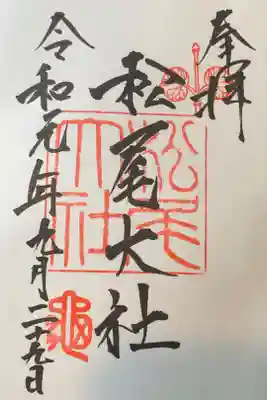 奉拝
松尾大社
松尾大社
令和元年九月二十九日